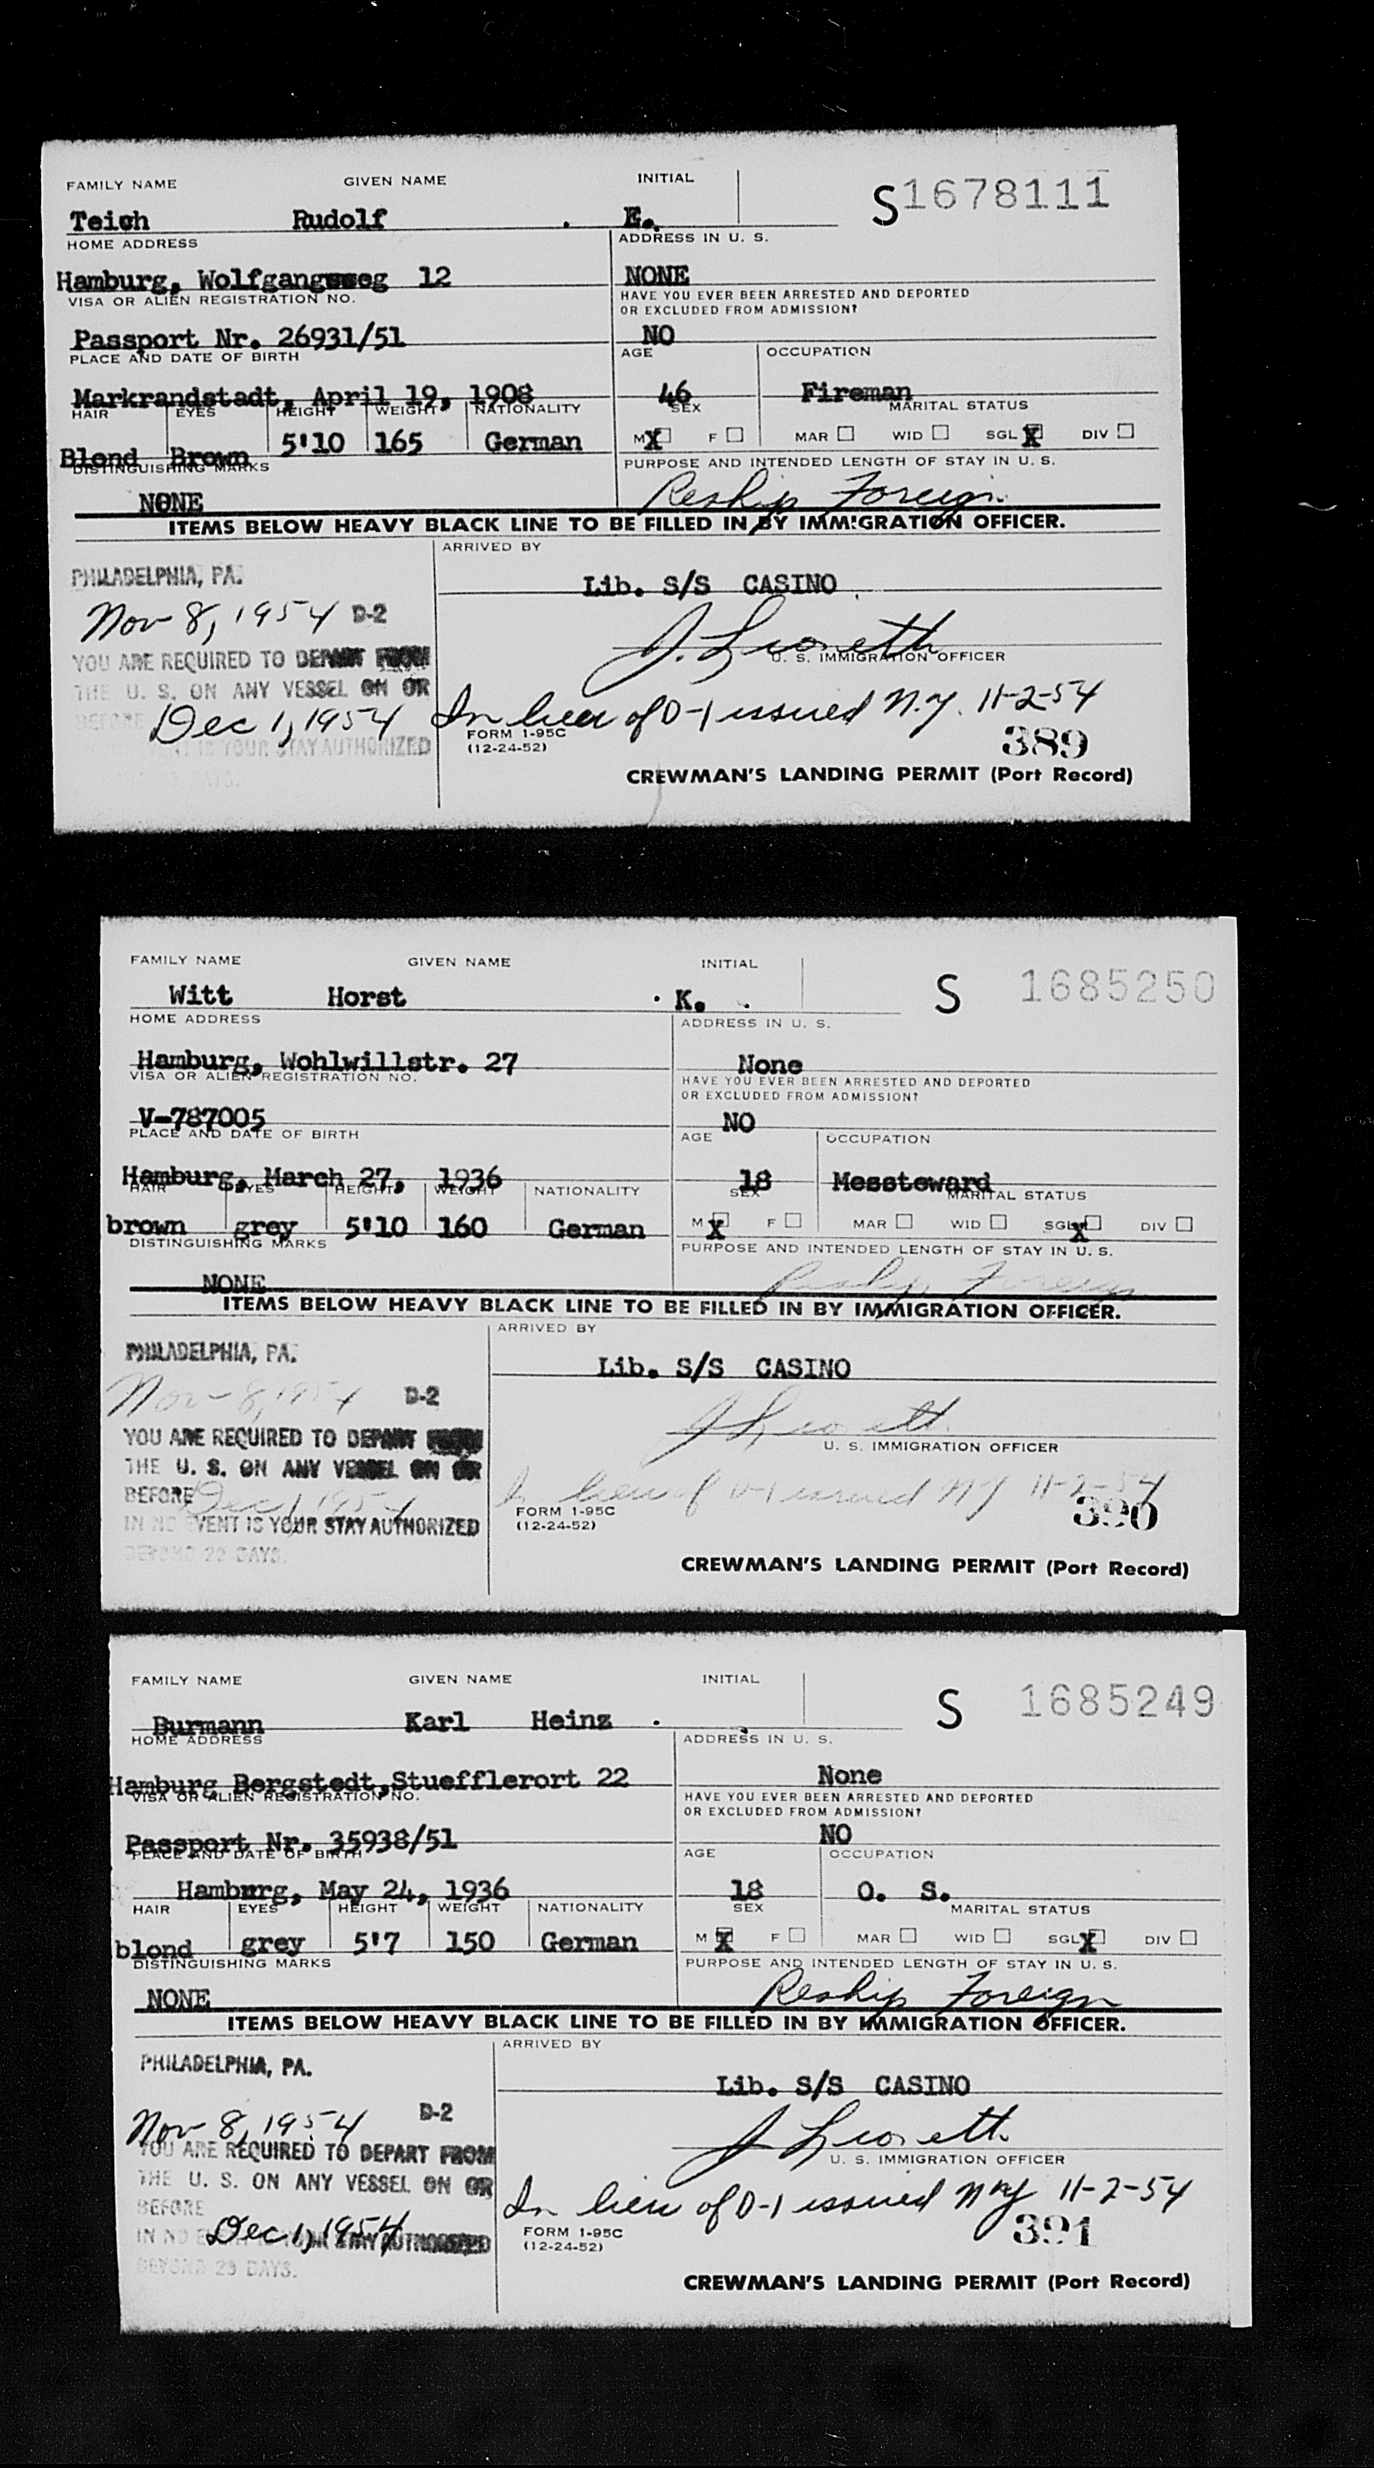 FAMILY NAME GIVEN NAME INITIAL
S1678111
Teich Rudolf . E.
HOME ADDRESS ADDRESS IN U. S.
Hamburg, Wolfgangsweg 12 NONE
VISA OR ALIEN REGISTRATION NO. HAVE YOU EVER BEEN ARRESTED AND DEPORTED
OR EXCLUDED FROM ADMISSION?
Passport Nr. 26931/51 NO
PLACE AND DATE OF BIRTH AGE OCCUPATION
Markrandstadt, April 19, 1908 46 Fireman
HAIR EYES HEIGHT WEIGHT NATIONALITY SEX MARITAL STATUS
Blond Brown 5'10 165 German M X F MAR WID SGL X DIV
DISTINGUISHING MARKS PURPOSE AND INTENDED LENGTH OF STAY IN U. S.
NONE Reship Foreign
ITEMS BELOW HEAVY BLACK LINE TO BE FILLED IN BY IMMIGRATION OFFICER.
ARRIVED BY
PHILADELPHIA, PA. Lib. S/S CASINO
Nov 8, 1954 D-2
YOU ARE REQUIRED TO DEPART FROM U. S. IMMIGRATION OFFICER
THE U. S. ON ANY VESSEL ON OR
BEFORE Dec 1, 1954 In lieu of D-1 issued N.Y. 11-2-54
FORM I-95C
(12-24-52) 389
EVENT IS YOUR STAY AUTHORIZED
DAYS.
CREWMAN'S LANDING PERMIT (Port Record)
FAMILY NAME GIVEN NAME INITIAL
S 1685250
Witt Horst . K. .
HOME ADDRESS ADDRESS IN U. S.
Hamburg, Wohlwillstr. 27 None
VISA OR ALIEN REGISTRATION NO. HAVE YOU EVER BEEN ARRESTED AND DEPORTED
OR EXCLUDED FROM ADMISSION?
V-787005 NO
PLACE AND DATE OF BIRTH AGE OCCUPATION
Hamburg, March 27, 1936 18 Messteward
HAIR EYES HEIGHT WEIGHT NATIONALITY SEX MARITAL STATUS
brown grey 5'10 160 German M X F MAR WID SGL X DIV
DISTINGUISHING MARKS PURPOSE AND INTENDED LENGTH OF STAY IN U. S.
NONE Reship Foreign
ITEMS BELOW HEAVY BLACK LINE TO BE FILLED IN BY IMMIGRATION OFFICER.
ARRIVED BY
PHILADELPHIA, PA. Lib. S/S CASINO
Nov 8, 1954 D-2
YOU ARE REQUIRED TO DEPART FROM U. S. IMMIGRATION OFFICER
THE U. S. ON ANY VESSEL ON OR
BEFORE Dec 1, 1954 In lieu of D-1 issued NY 11-2-54
FORM I-95C
(12-24-52) 390
IN NO EVENT IS YOUR STAY AUTHORIZED
BEYOND 29 DAYS.
CREWMAN'S LANDING PERMIT (Port Record)
FAMILY NAME GIVEN NAME INITIAL
S 1685249
Burmann Karl Heinz .
HOME ADDRESS ADDRESS IN U. S.
Hamburg Bergstedt,Stuefflerort 22 None
VISA OR ALIEN REGISTRATION NO. HAVE YOU EVER BEEN ARRESTED AND DEPORTED
OR EXCLUDED FROM ADMISSION?
Passport Nr. 35938/51 NO
PLACE AND DATE OF BIRTH AGE OCCUPATION
Hamburg, May 24, 1936 18 O. S.
HAIR EYES HEIGHT WEIGHT NATIONALITY SEX MARITAL STATUS
blond grey 5'7 150 German M X F MAR WID SGL X DIV
DISTINGUISHING MARKS PURPOSE AND INTENDED LENGTH OF STAY IN U. S.
NONE Reship Foreign
ITEMS BELOW HEAVY BLACK LINE TO BE FILLED IN BY IMMIGRATION OFFICER.
ARRIVED BY
PHILADELPHIA, PA. Lib. S/S CASINO
Nov 8, 1954 D-2
YOU ARE REQUIRED TO DEPART FROM U. S. IMMIGRATION OFFICER
THE U. S. ON ANY VESSEL ON OR
BEFORE In lieu of D-1 issued NY 11-2-54
Dec 1, 1954
FORM I-95C
(12-24-52) 391
IN NO EVENT IS YOUR STAY AUTHORIZED
BEYOND 29 DAYS.
CREWMAN'S LANDING PERMIT (Port Record)